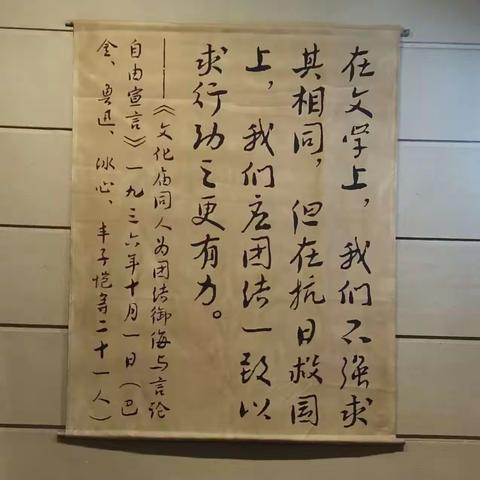 在文学上，我们不强求
其相同，但在抗日救国
上，我们应团结一致以
求行动之更有力。
——《文化届同人为团结御侮与言论
自由宣言》一九三六年十月一日（巴
金、鲁迅、冰心、丰子恺等二十一人）